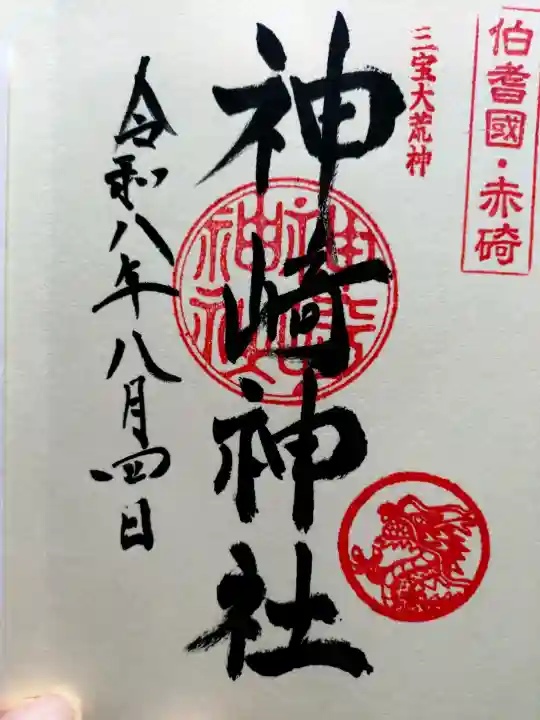 伯耆國・赤碕
三宝大荒神
神崎神社
令和八年八月四日